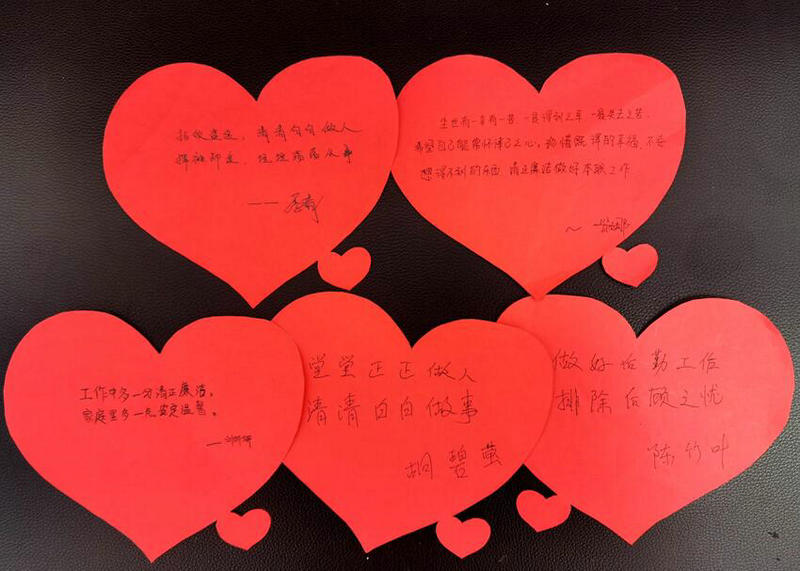 拒收 清清白白做人
拒 坦坦荡荡从事
生世有一乐有一苦 一是得到之乐 一是失去之苦
希望自己能常怀律己之心，珍惜既得的幸福，不去
想得不到的东西 清正廉洁做好本职工作
工作中多一分清正廉洁，
家庭里多一点安定温馨。
堂堂正正做人
清清白白做事
胡碧萤
做好后勤工作
排除后顾之忧
陈竹叶